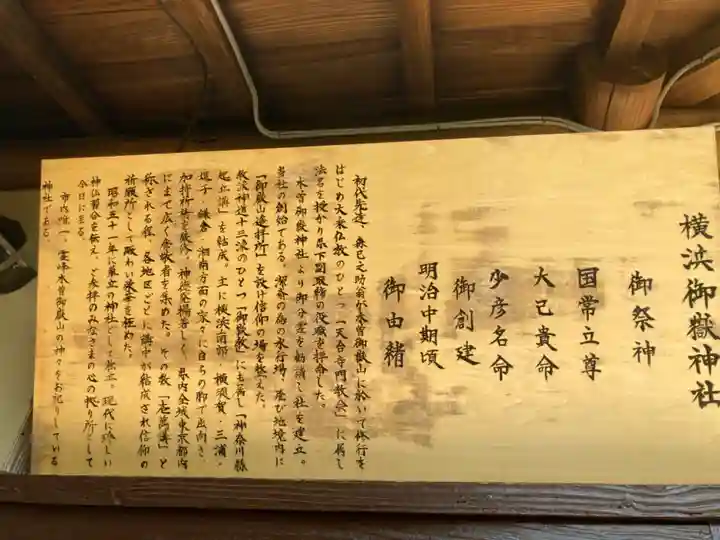 横浜御嶽神社
御祭神
国常立尊
大己貴命
少彦名命
御創建
明治中期頃
御由緒
初代先達、森巳之助翁が木曽御嶽山に於いて修行を
はじめ大乗仏教のひとつ「天台寺門教会」に属し
法名を授かり県下副取締の役職を拝命した。
木曽御嶽神社より御分霊を勧請し社を建立。
当社の創始である。潔斎の為の水行場、並び地境内に
「御嶽山遥拝所」を設け信仰の場を整えた。
教派神道十三派のひとつ「御嶽教」にも属し「神奈川縣
起立講」を結成。主に横浜南部・横須賀・三浦・
逗子・鎌倉・湘南方面の家々に自らの脚で出向き、
加持祈祷を厳修、神徳発揚著しく、県内全域東京都内
にまで広く崇敬者を集めた。その数「一萬講」と
称される程、各地区ごとに講中が結成され信仰の
祈願所として賑わい栄華を極めた。
昭和五十一年に単立の神社として独立。現代に珍しい
神仏習合を伝え、ご参拝のみなさまの心の拠り所として
今日に至る。
市内唯一、霊峰木曽御嶽山の神々をお祀りしている
神社である。